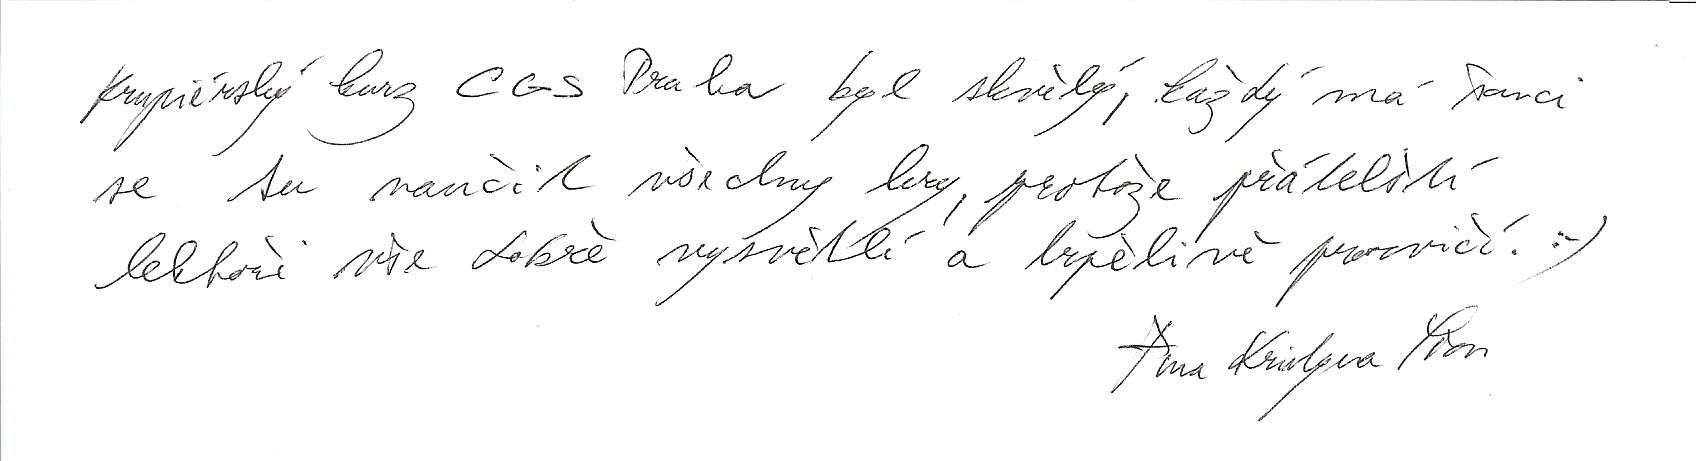 Krupiérský kurz CGS Praha byl skvělý, každý má šanci
se tu naučit všechny hry, protože přátelští
lektoři vše dobře vysvětlí a trpělivě procvičí. :-)